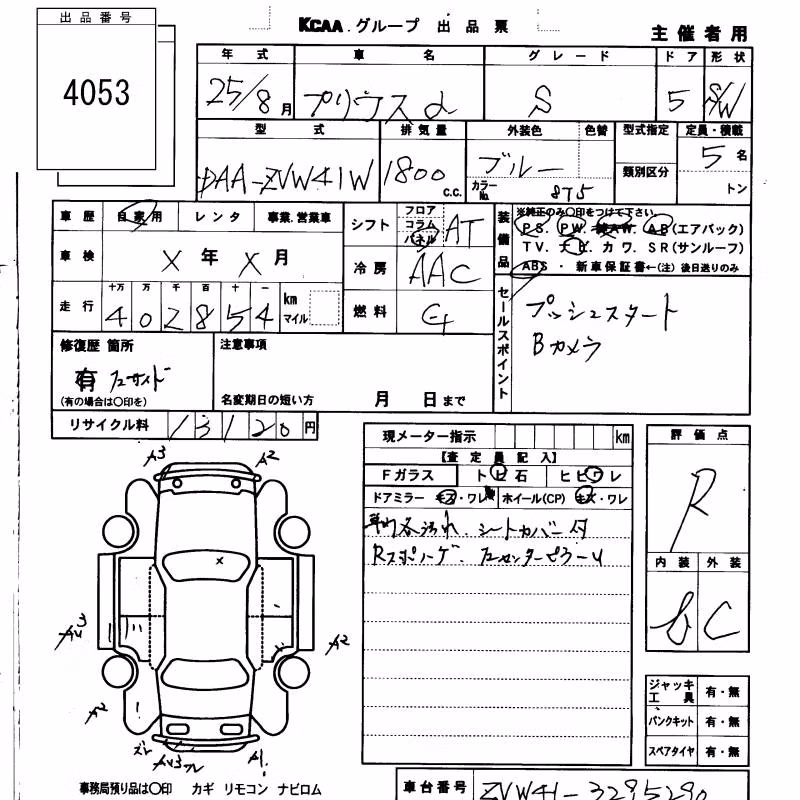 出品番号
4053
KCAA.グループ 出品票
主催者用
年式 車名 グレード ドア 形状
25/8月 プリウスα S 5 S/W
型式 排気量 外装色 色替 型式指定 定員・積載
DAA-ZVW41W 1800 c.c. ブルー 5名
カラーNo. 8T5 類別区分 トン
車歴 自家用 レンタ 事業.営業車
シフト フロア コラム パネル AT
装備品 ※純正のみ〇印をつけて下さい。
PS. PW. AW. AB(エアバック)
TV. ナビ. カワ. SR(サンルーフ)
ABS ・ 新車保証書←(注)後日送りのみ
車検 X年X月
冷房 AAC
走行 十万 万 千 百 十 一
402854 km マイル
燃料 G
セールスポイント
プッシュスタート
Bカメラ
修復歴 箇所
有
(有の場合は〇印を)
注意事項
名変期日の短い方 月 日まで
リサイクル料 13120円
現メーター指示 km
【査定員記入】
Fガラス トビ石 ヒビワレ
ドアミラー キズ・ワレ ホイール(CP) キズ・ワレ
シートカバー付
評価点
R
内装 外装
b C
A3 A2
X
A2
A2
A1
ジャッキ工具 有・無
パンクキット 有・無
スペアタイヤ 有・無
事務局預り品は〇印 カギ リモコン ナビロム
車台番号 ZVW41-3295290